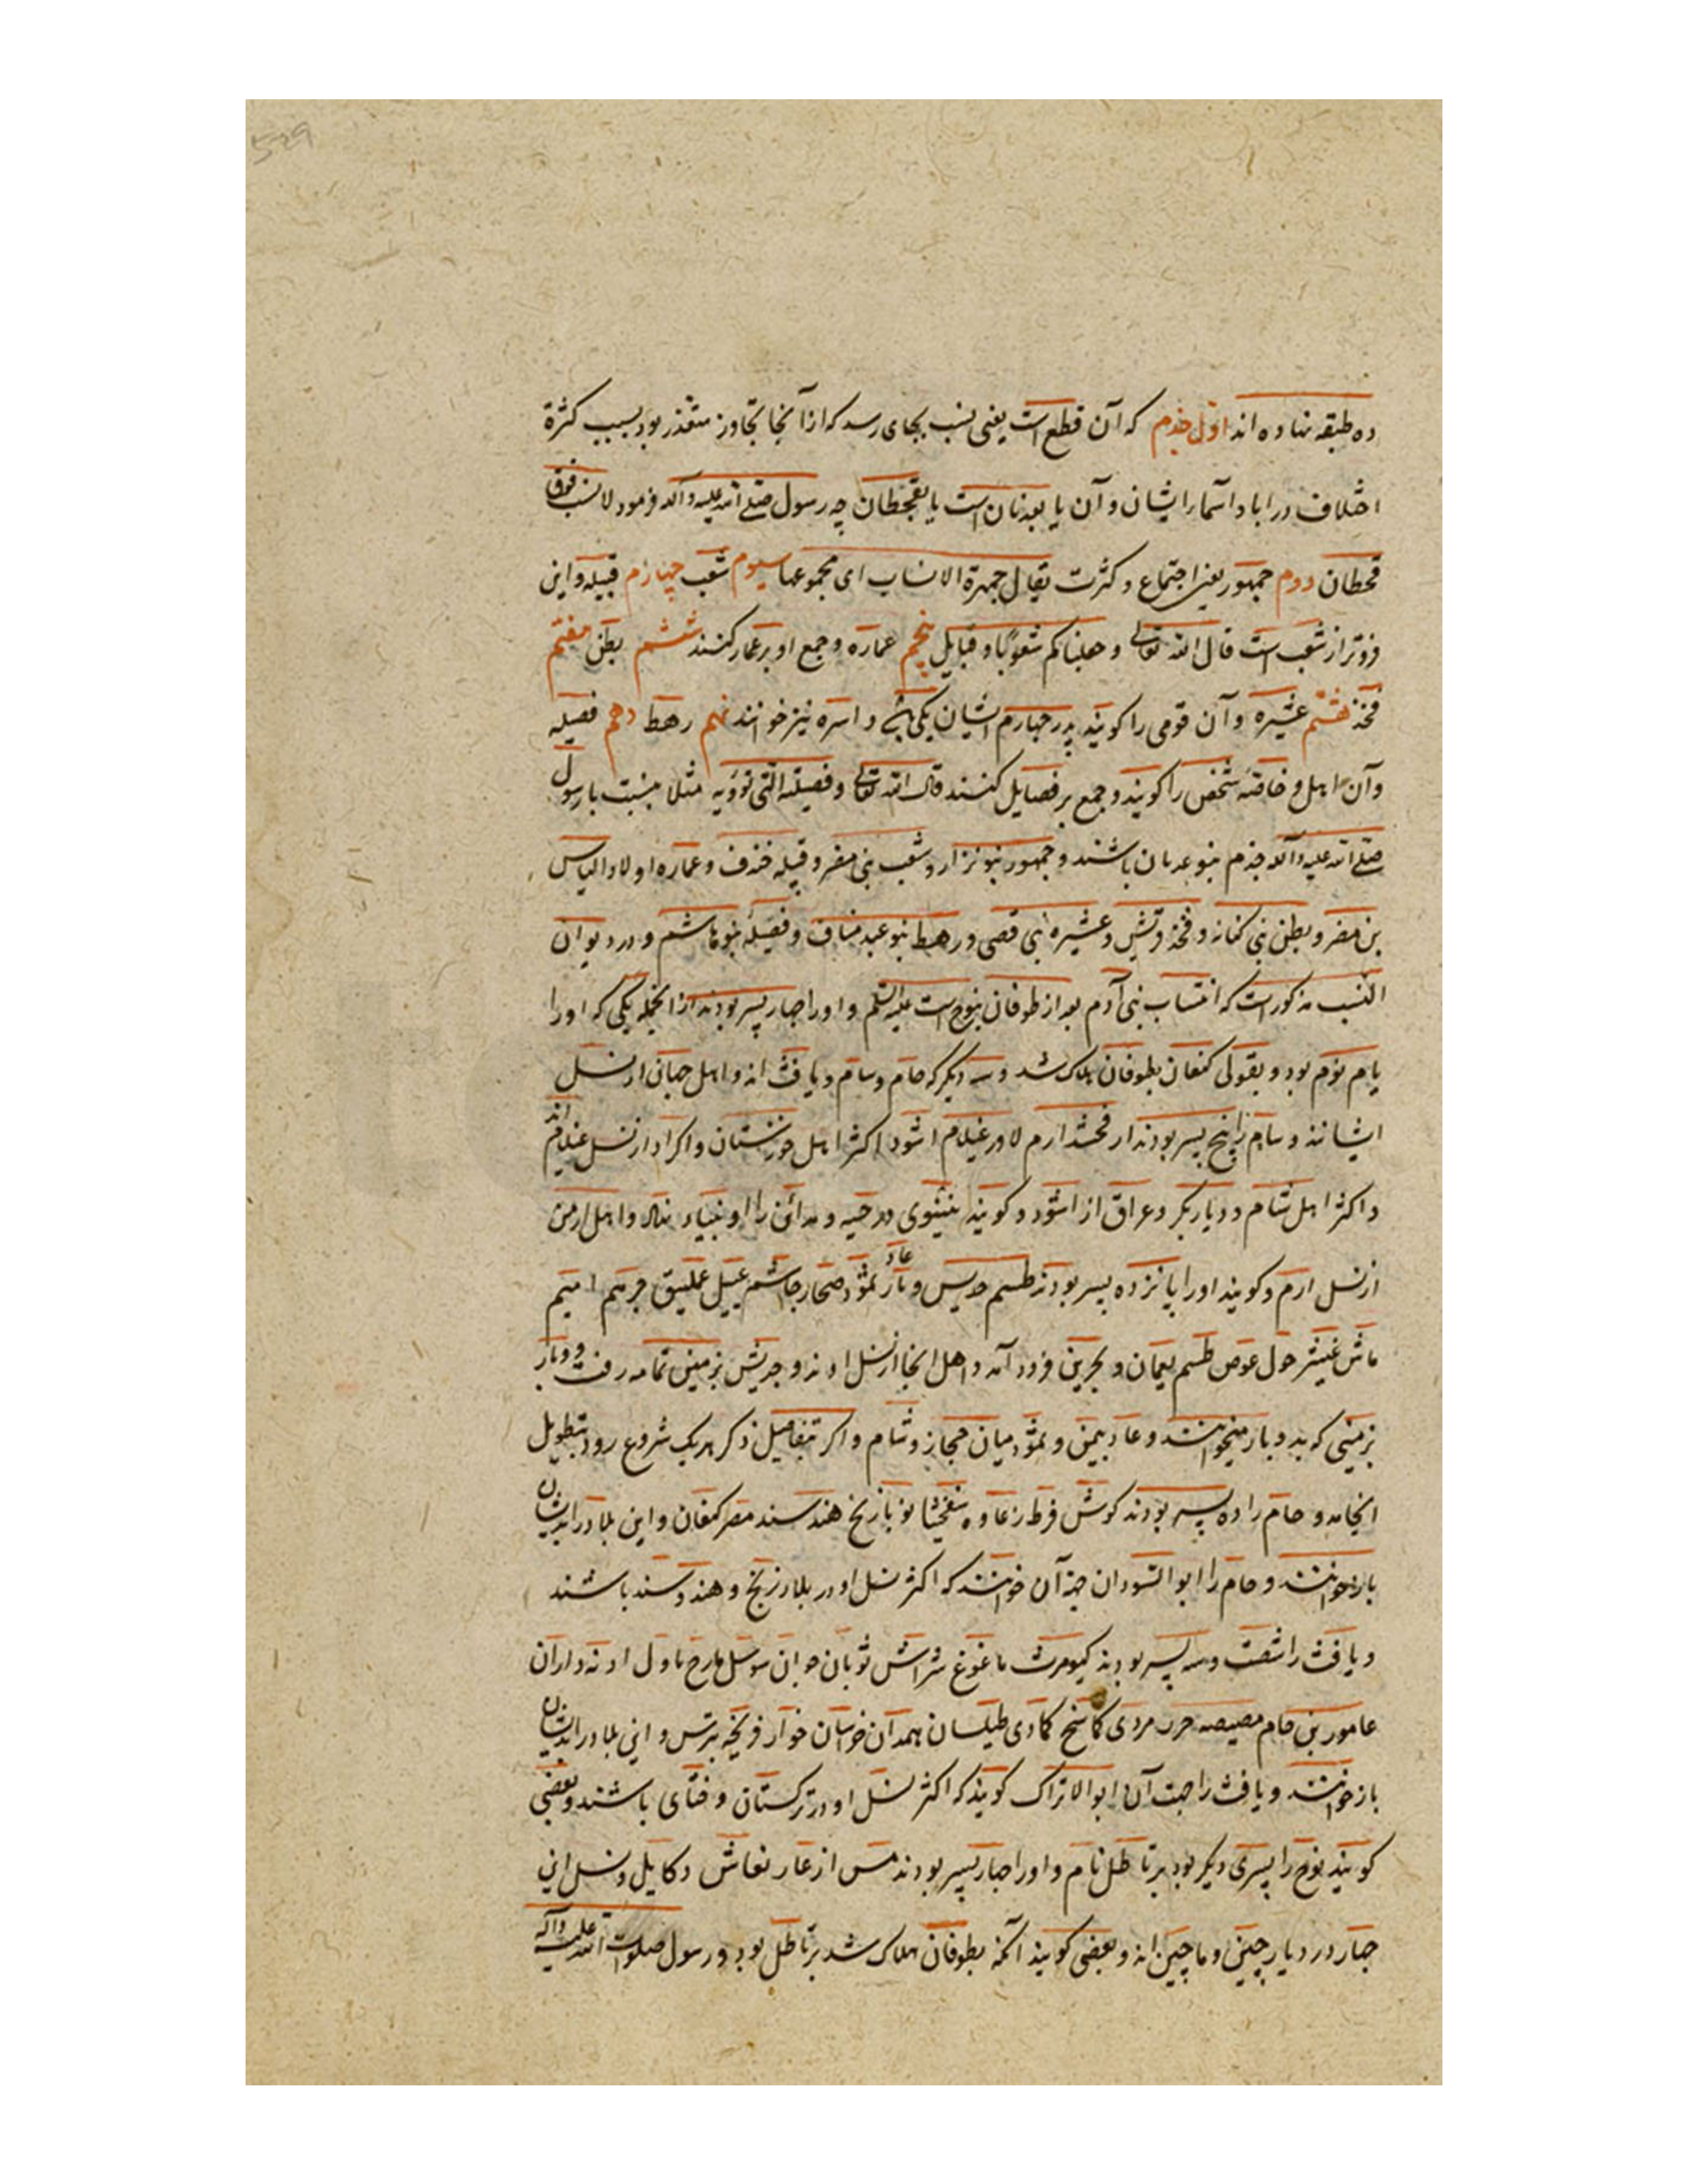 ده طبقه نهاده‌اند اوّل جذم که آن قطع است یعنی نسب بجای رسد که از آنجا تجاوز متعذر بود بسبب کثرة
اختلاف در ابا و اسما ایشان و آن یا بعدنان است یا بقحطان چه رسول صلی الله علیه و آله فرمود لا نسب فوق
قحطان دوم جمهور یعنی اجتماع و کثرت یقال جمهرة الانساب ای مجموعها سیوم شعب چهارم قبیله و این
فروتر از شعب است قال الله تعالی و جعلناکم شعوبًا و قبایل پنجم عماره و جمع او بر عمار کنند ششم بطن هفتم
فخذ هشتم عشیره و آن قومی را کویند پدر چهارم ایشان یکی باشد و اسره نیز خوانند نهم رهط دهم فصیله
و آن اهل و خاصهٔ شخص را کویند و جمع بر فصایل کنند قال الله تعالی و فصیلته التی تؤویه مثلا بنسبت با رسول
صلی الله علیه و آله جذم بنو عدنان باشند و جمهور بنو نزار و شعب بنی مضر و قبیله خندف و عماره اولاد الیاس
بن مضر و بطن بنی کنانه و فخذ قریش و عشیره بنی قصی و رهط بنو عبد مناف و فصیلهٔ بنو هاشم و در دیوان
النسب مذکور است که انتساب بنی آدم بعد از طوفان بنوح است علیه السلم و او را چهار پسر بودند از انجمله یکی که او را
یام نوم بود و بقولی کنعان بطوفان هلاک شد و سه دیگر که حام و سام و یافث‌اند و اهل جهان از نسل
ایشانند و سام را پنج پسر بودند ارفخشد ارم لاور غیلام اشود اکثر اهل خوزستان و اکراد از نسل غیلام اند
و اکثر اهل شام و دیاربکر و عراق از اشود و کویند نینوی و رحبه و مداین را او بنیاد نهاد و اهل ارمن
از نسل ارم و کویند او را پانزده پسر بودند طسم جدیس عاد و بار ثمود صحار جاشم عبیل عملیق جرهم امیم
ماش غیشر حول عوص طسم بعمان و بحرین فرود آمد و اهل انجا از نسل اوند و جدیس بزمین تمامه رفت و وبار
بزمینی که بدو بار میخوانند و عاد بیمن و ثمود میان حجاز و شام و اکر بتفاصیل ذکر هریک شروع رود بتطویل
انجامد و حام را ده پسر بودند کوش قرط زعاوه نوبا زنج هند سند مصر کنعان و این بلاد را بدیشان
باز خوانند و حام را ابو السودان جهة آن خوانند که اکثر نسل او در بلاد زنج و هند و سند باشند
و یافث را شصت و سه پسر بودند کیومرث ماغوغ
عامور بن حام مصیصه طیلسان همدان خراسان خوار و این بلاد را بدیشان
باز خوانند و یافث را جهت آن ابو الاتراک کویند که اکثر نسل او در ترکستان و ختای باشند و بعضی
کویند نوح را پسری دیگر بود برتاطل نام و او را چهار پسر بودند و نسل این
چهار در دیار چین و ماچین‌اند و بعضی کویند آنکه بطوفان هلاک شد برتاطل بود و رسول صلوات الله علیه و آله